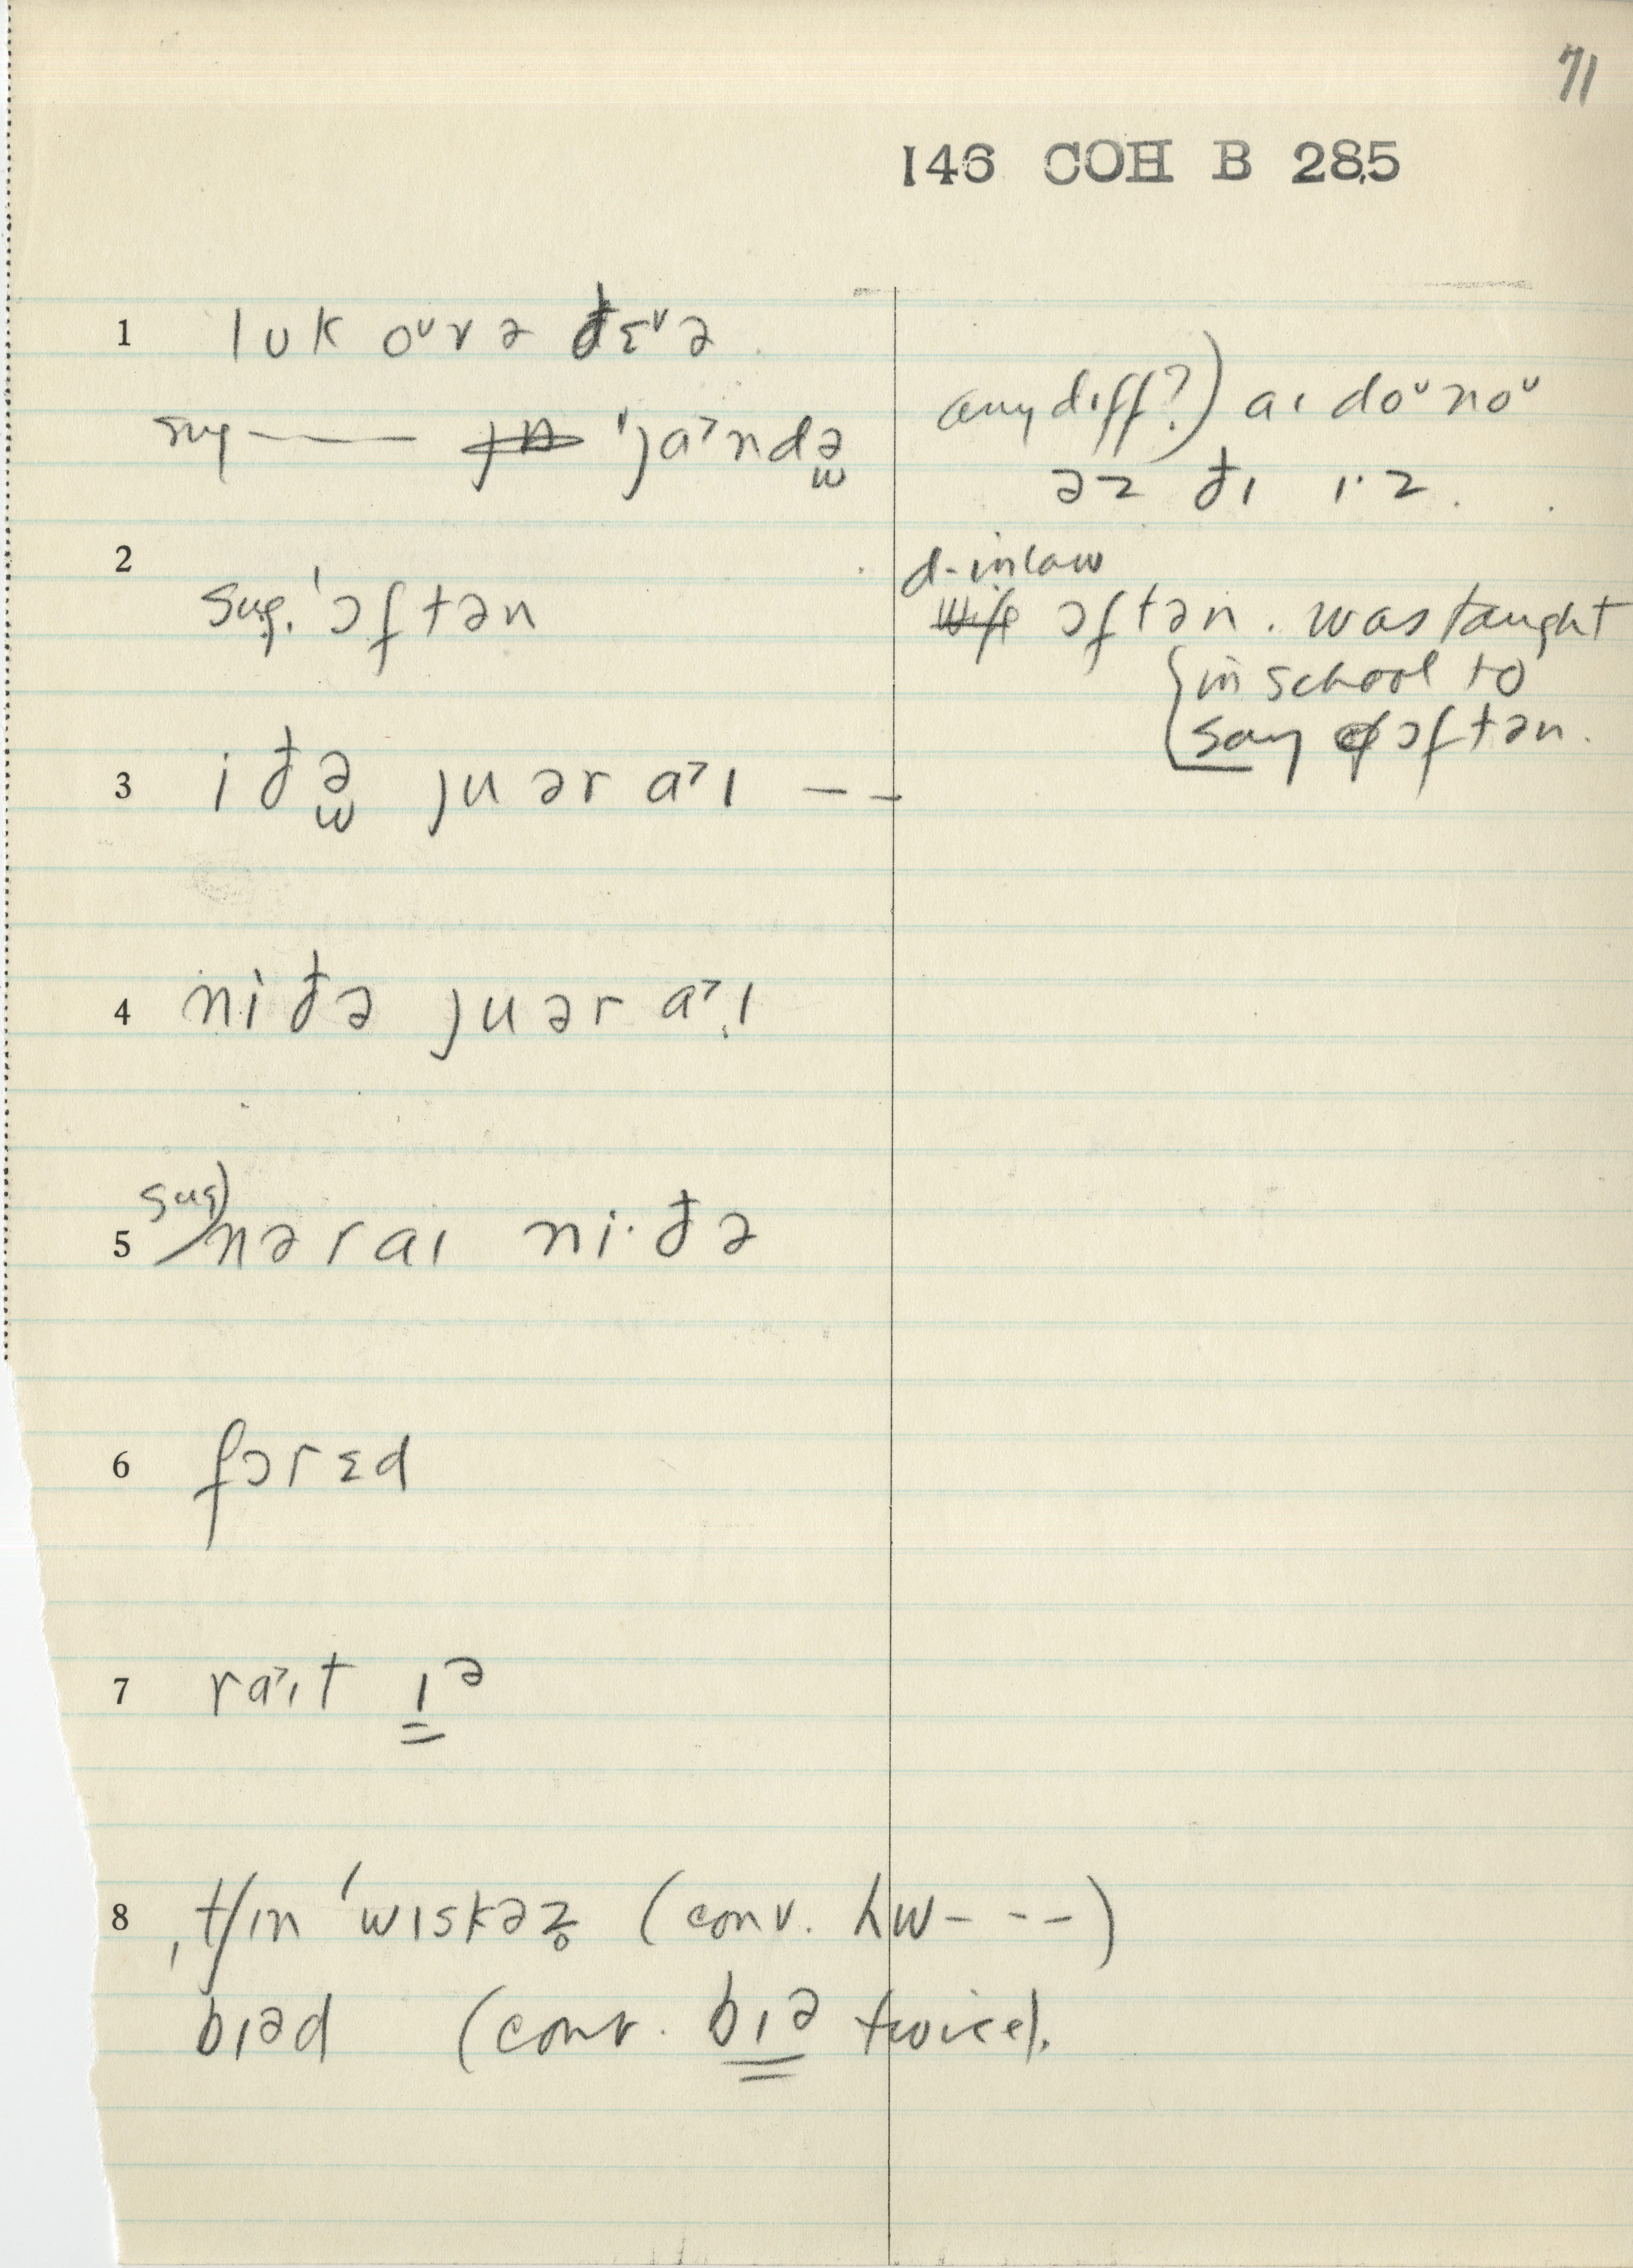 71
146 COH B 285
1 lʊk oᵛvə đɛᵛə
sug —— ˈja˃ndə̫
any diff?) aɪ doᵛnoᵛ
əz đɪ ɪ·z.
2 sug. ˈɔftən
d-inlaw
ɔftən. was taught
in school to
say ɔftən.
3 iđə̫ juər a˃ɪ – –
4 niđə juər a˃ɪ
5 sug) nəraɪ ni·đə
6 fɔrɛd
7 ra˃ɪt ɪᵊ
8 ˌtʃɪn ˈwɪskəz̥ (conv. hw- - - -)
bɪəd (conv. bɪᵊ twice).